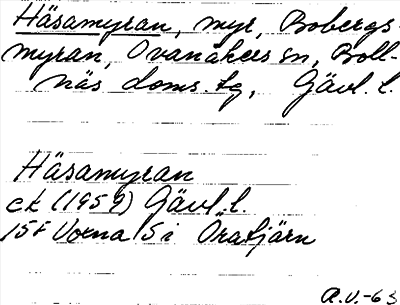 Häsamyran, myr, Bobergs-
myran, Ovanåkers sn, Boll-
näs doms. tg, Gävl. l.
Häsamyran
ek (1959) Gävl. l.
15F Voxna 5i Öratjärn
R.U.-63